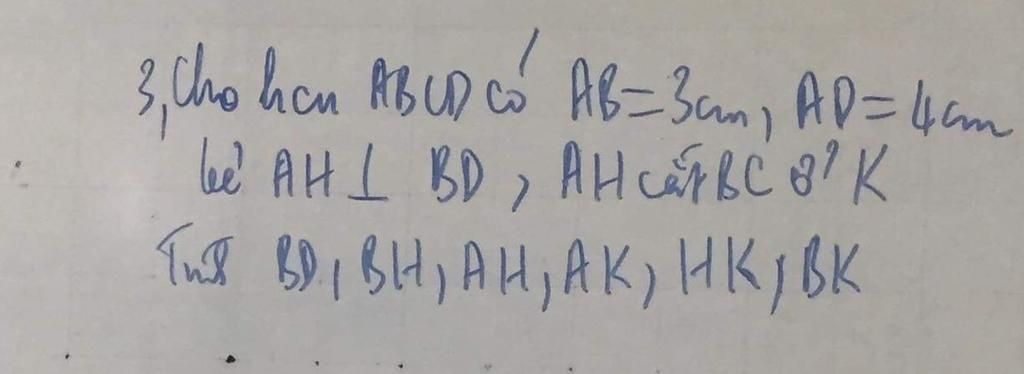 3, Cho hcn ABCD có AB=3cm, AD=4cm
kẻ AH⊥ BD, AH cắt BC ở K
Tính BD, BH, AH, AK, HK, BK